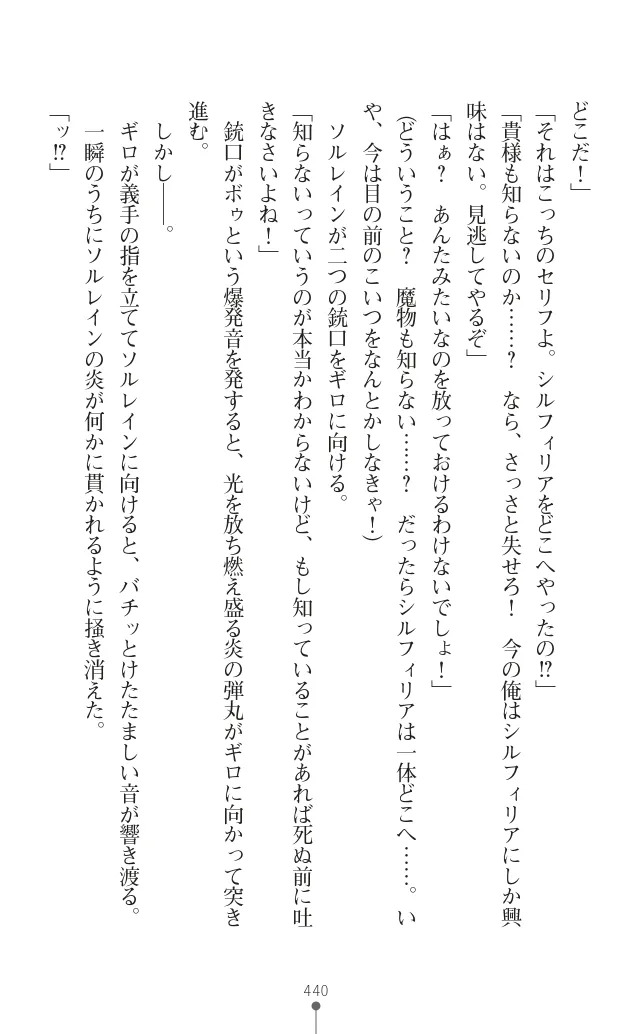 どこだ！」
「それはこっちのセリフよ。シルフィリアをどこへやったの⁉」
「貴様も知らないのか……？　なら、さっさと失せろ！　今の俺はシルフィリアにしか興
味はない。見逃してやるぞ」
「はぁ？　あんたみたいなのを放っておけるわけないでしょ！」
（どういうこと？　魔物も知らない……？　だったらシルフィリアは一体どこへ……。い
や、今は目の前のこいつをなんとかしなきゃ！）
　ソルレインが二つの銃口をギロに向ける。
「知らないっていうのが本当かわからないけど、もし知っていることがあれば死ぬ前に吐
きなさいよね！」
　銃口がボゥという爆発音を発すると、光を放ち燃え盛る炎の弾丸がギロに向かって突き
進む。
　しかし――。
　ギロが義手の指を立ててソルレインに向けると、バチッとけたたましい音が響き渡る。
　一瞬のうちにソルレインの炎が何かに貫かれるように掻き消えた。
「ッ⁉」
440